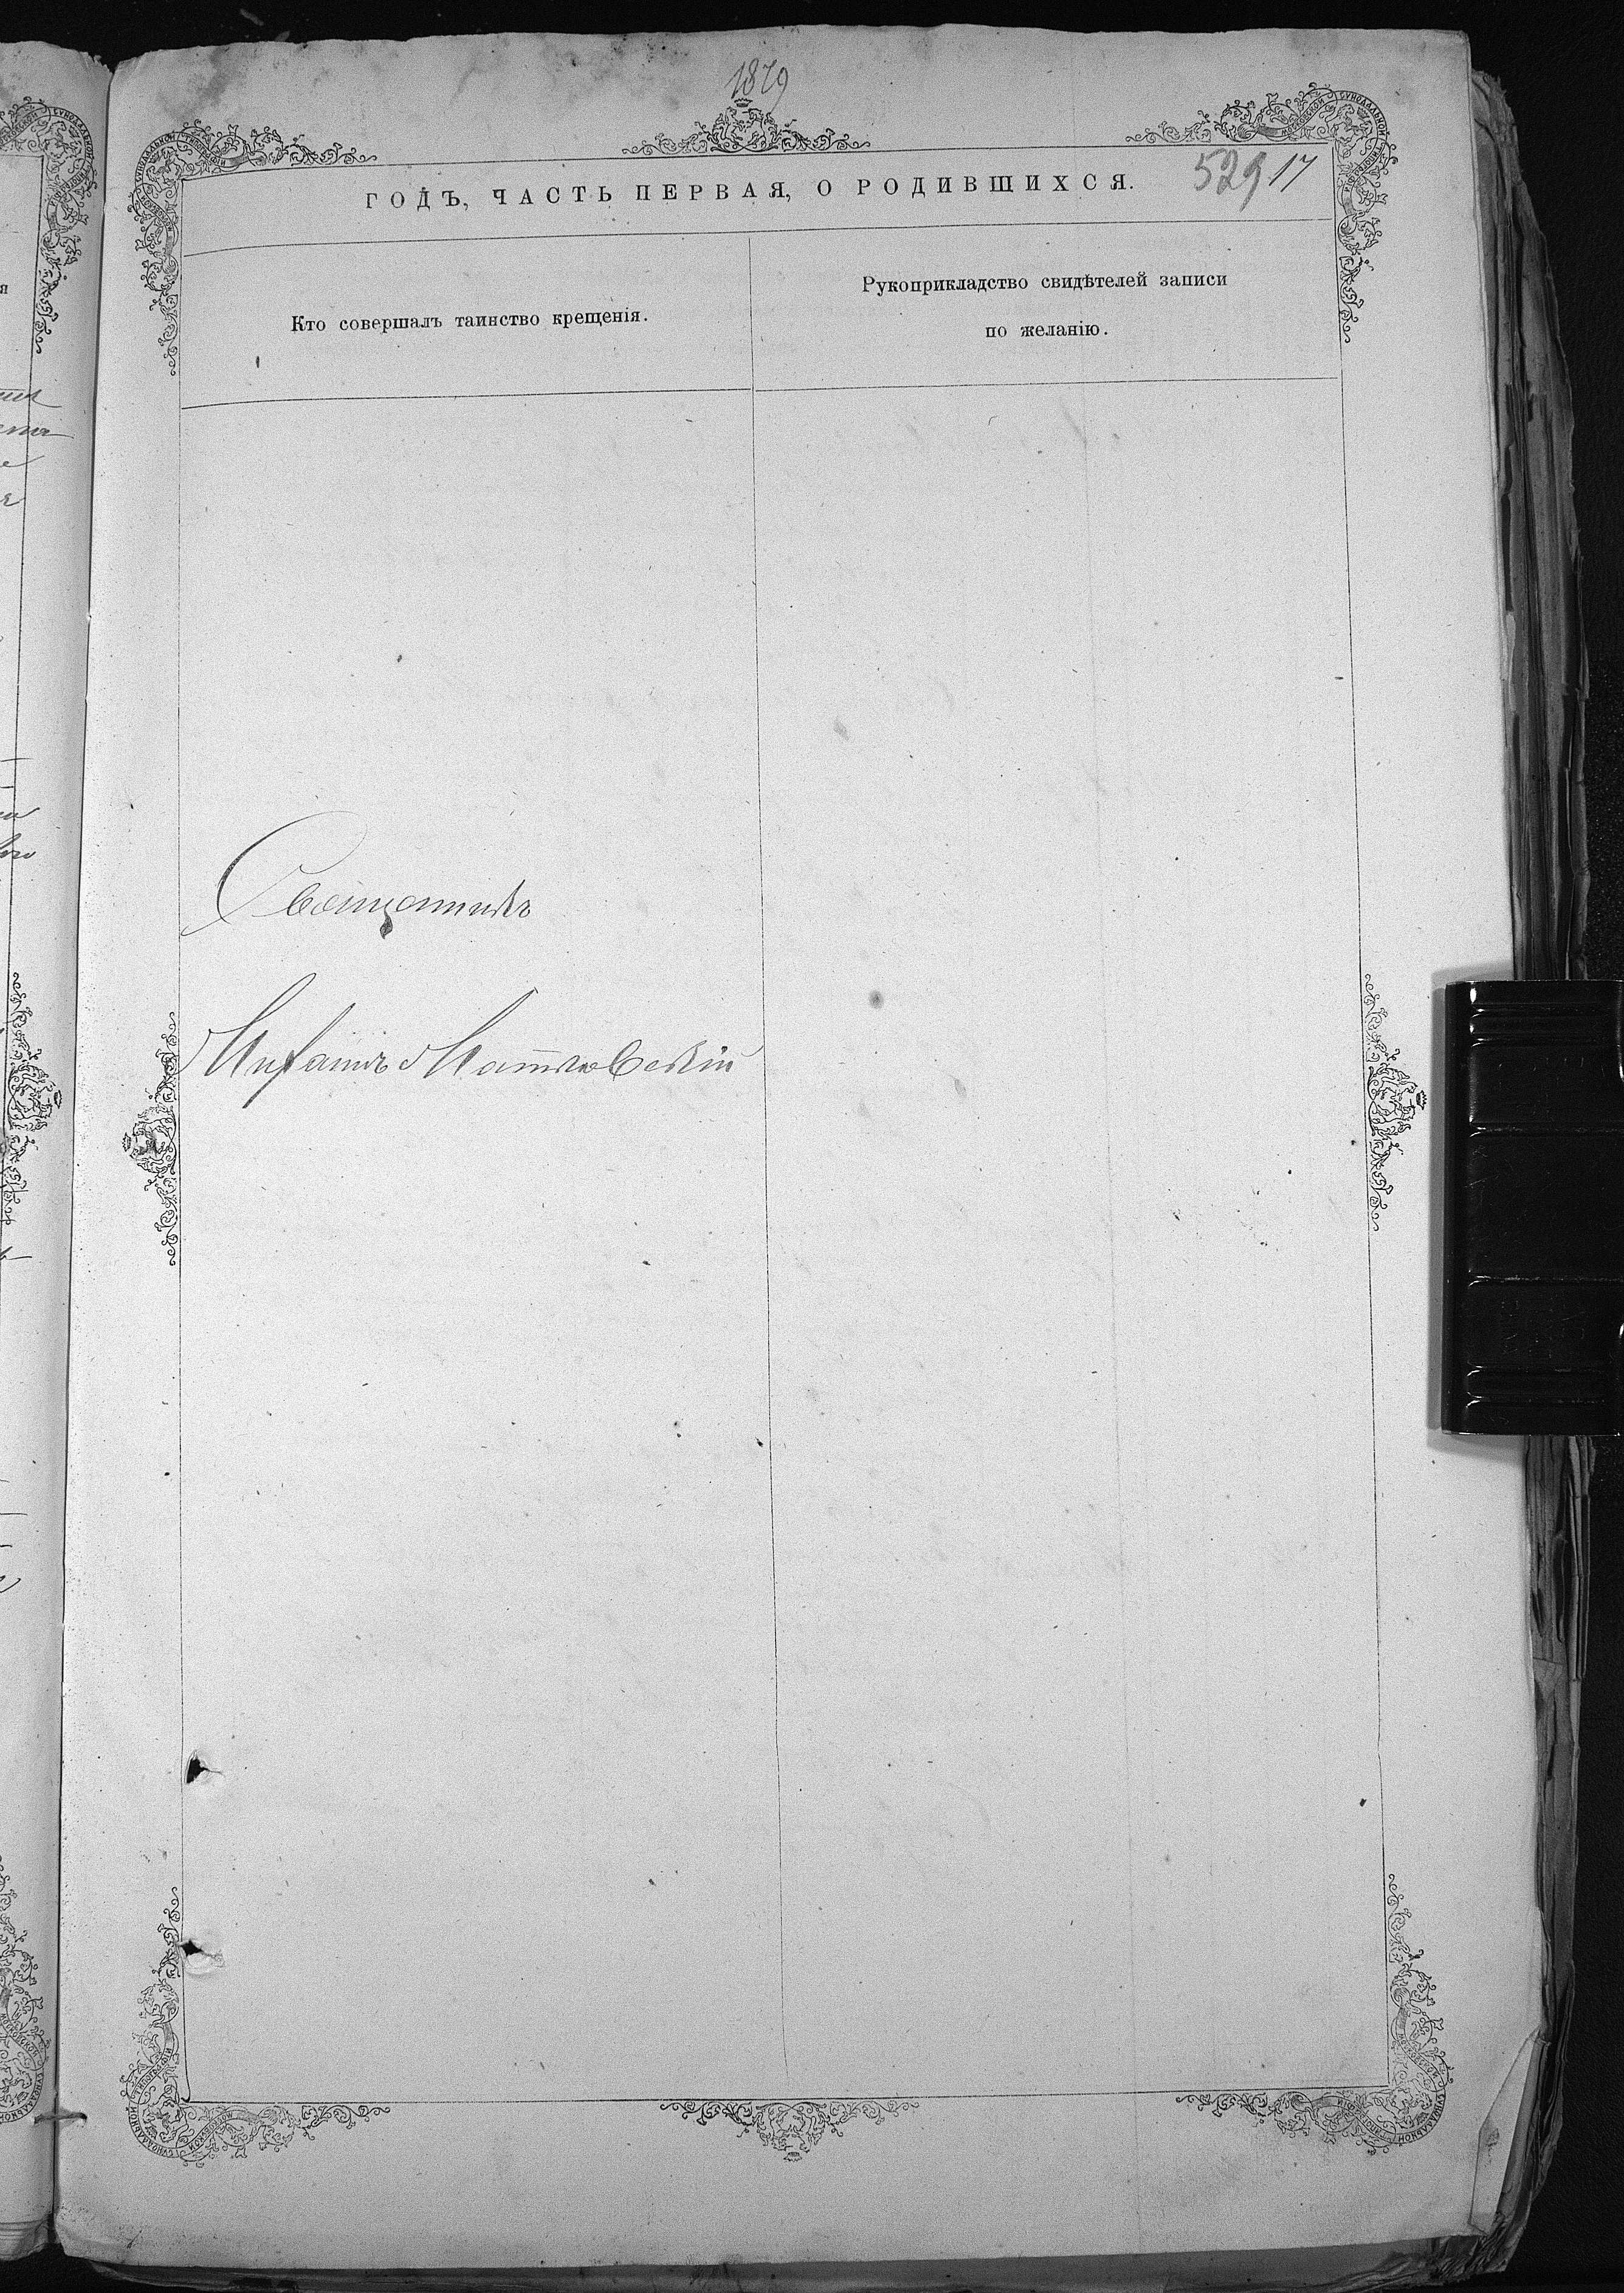 1879
ГОДЪ, ЧАСТЬ ПЕРВАЯ, О РОДИВШИХСЯ.
529 17
Кто совершалъ таинство крещенія.
Рукоприкладство свидѣтелей записи
по желанію.
Священникъ
Михаилъ